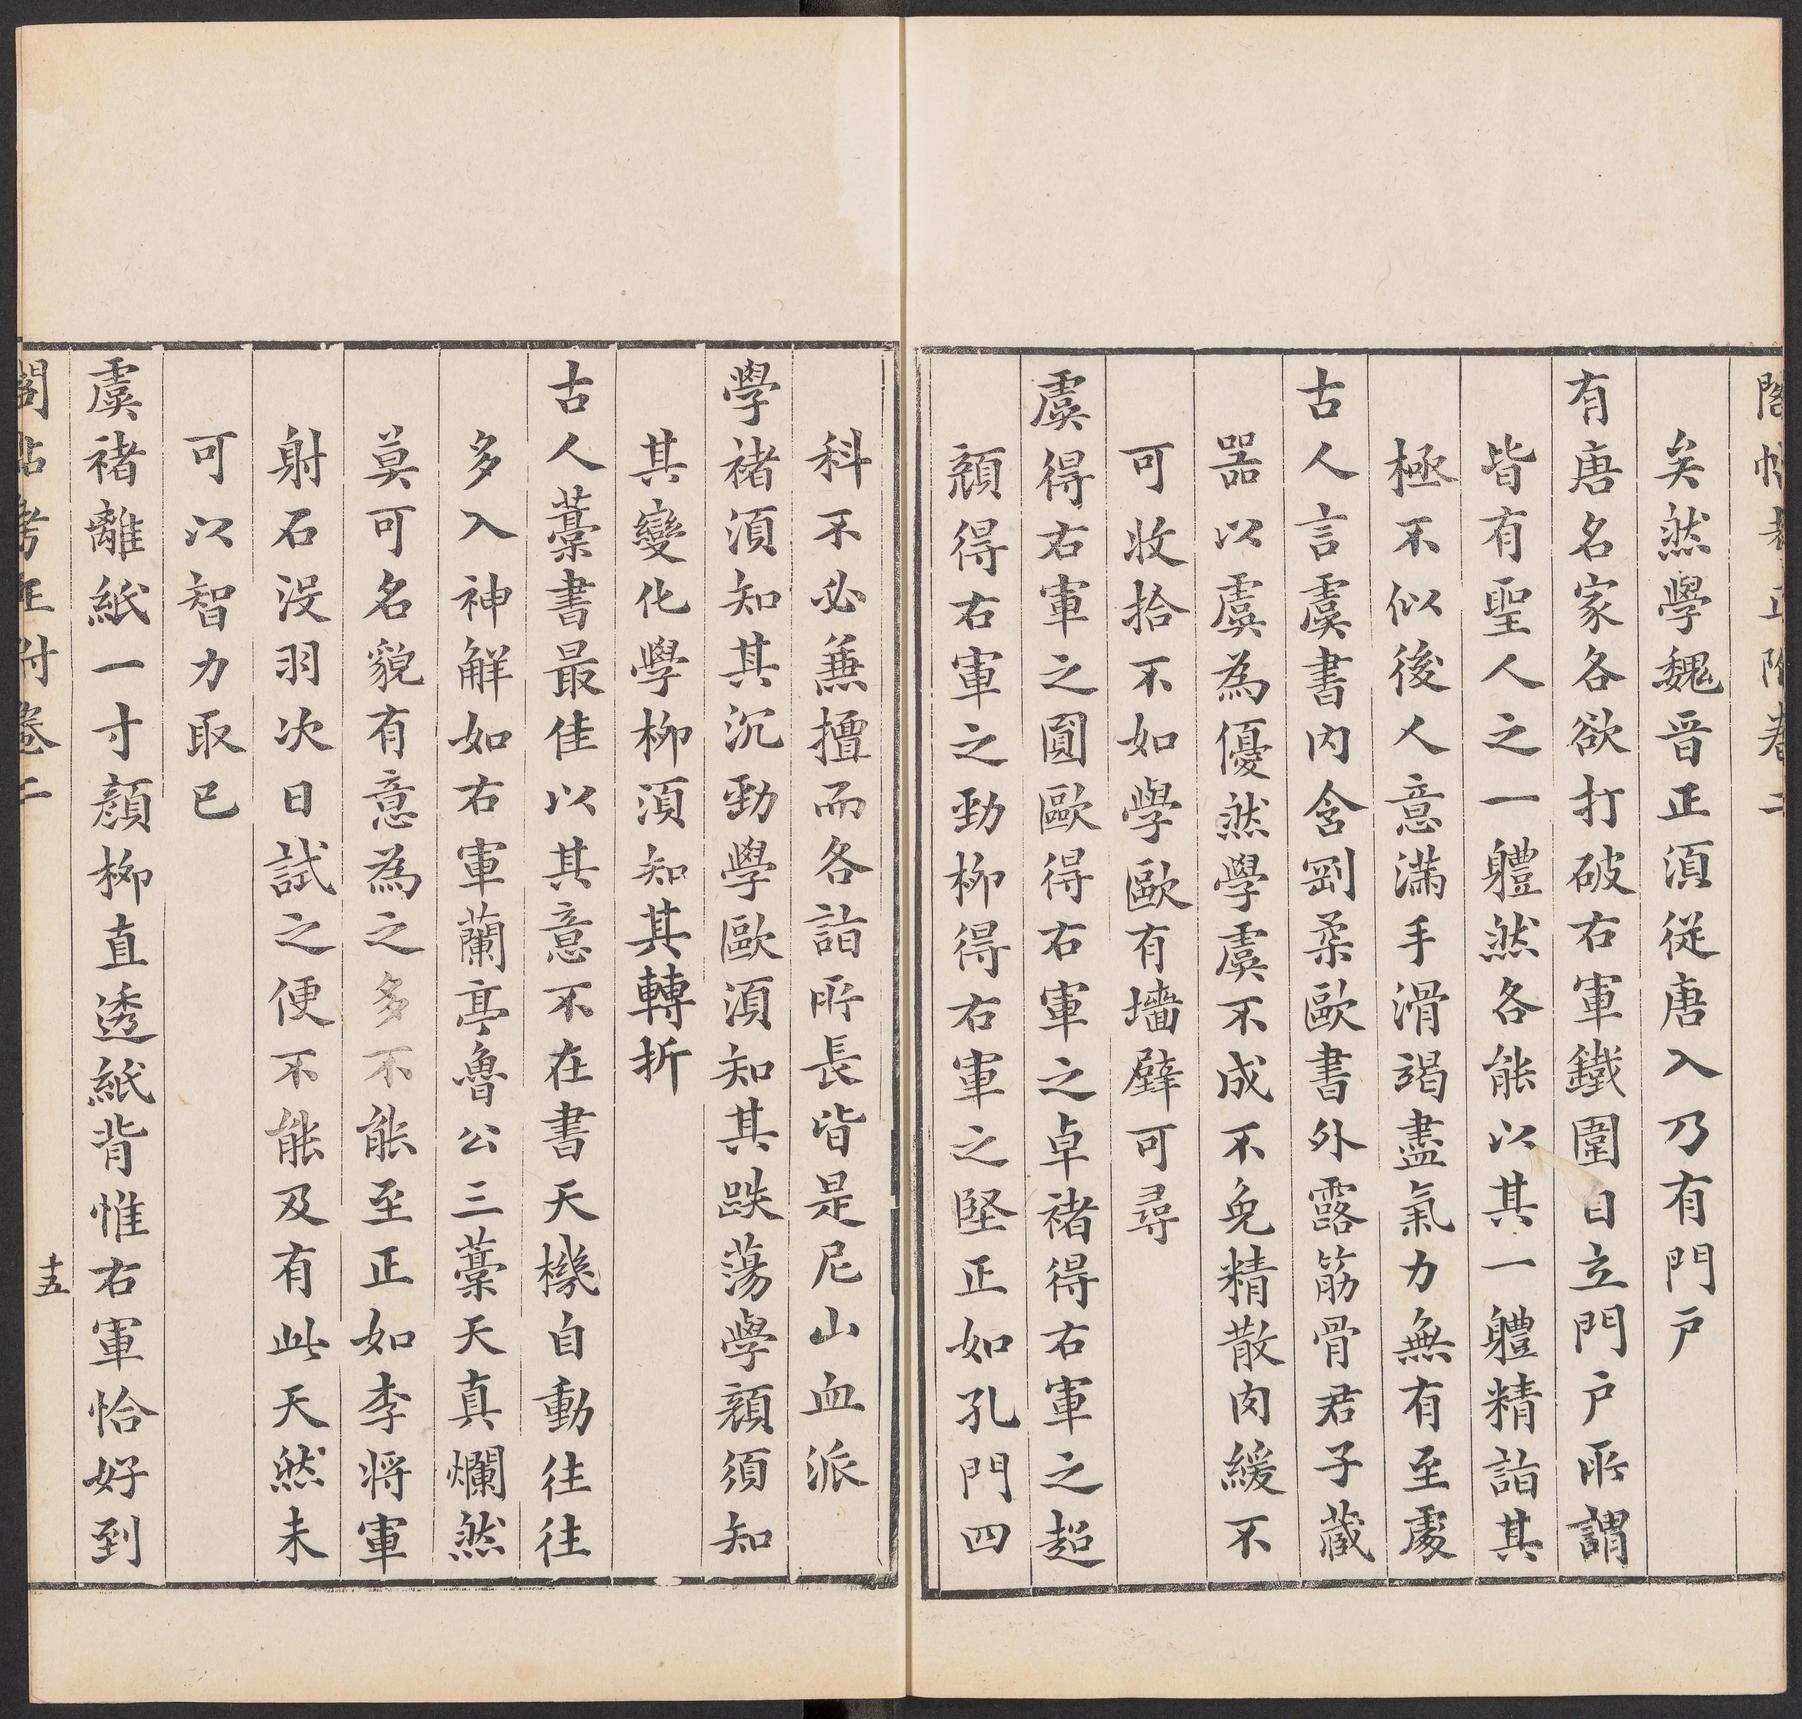 閣帖考正附卷二
矣然學魏晉正須從唐入乃有門戶
有唐名家各欲打破右軍鐵圍自立門戶所謂
皆有聖人之一軆然各能以其一軆精詣其
極不似後人意滿手滑竭盡氣力無有至處
古人言虞書內含剛柔歐書外露筋骨君子藏
器以虞為優然學虞不成不免精散肉緩不
可收拾不如學歐有墻壁可尋
虞得右軍之圓歐得右軍之卓褚得右軍之超
顏得右軍之勁柳得右軍之堅正如孔門四
科不必兼擅而各詣所長皆是尼山血派
學褚須知其沉勁學歐須知其跌蕩學顏須知
其變化學柳須知其轉折
古人藁書最佳以其意不在書天機自動往往
多入神解如右軍蘭亭魯公三藁天真爛然
莫可名貌有意為之多不能至正如李將軍
射石沒羽次日試之便不能及有此天然未
可以智力取已
虞褚離紙一寸顏柳直透紙背惟右軍恰好到
閣帖考正附卷二
十五